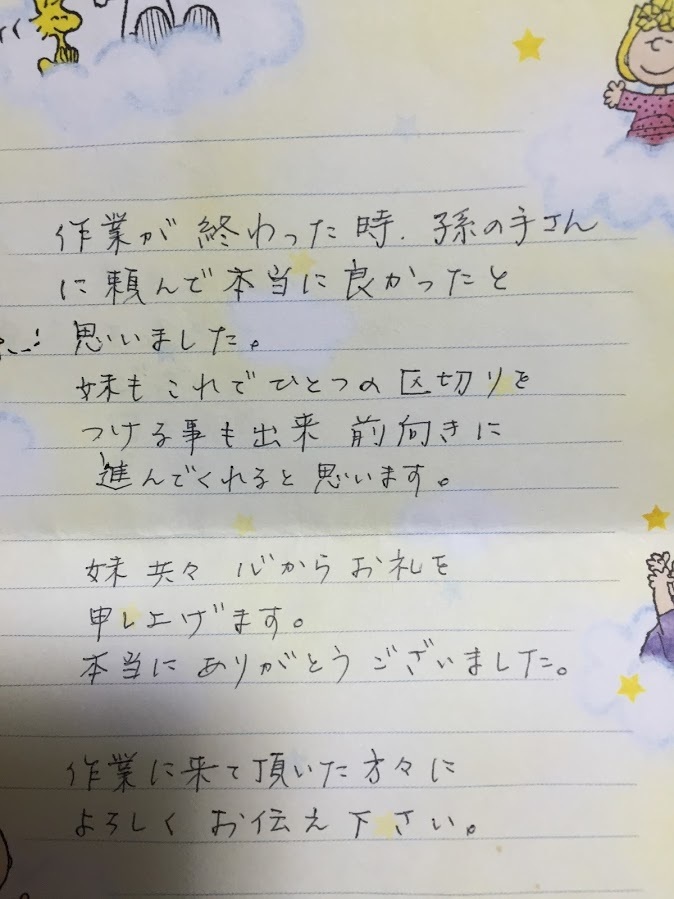 作業が終わった時、孫の手さん
に頼んで本当に良かったと
思いました。
妹もこれでひとつの区切りを
つける事も出来 前向きに
進んでくれると思います。
妹共々 心からお礼を
申し上げます。
本当にありがとうございました。
作業に来て頂いた方々に
よろしくお伝え下さい。